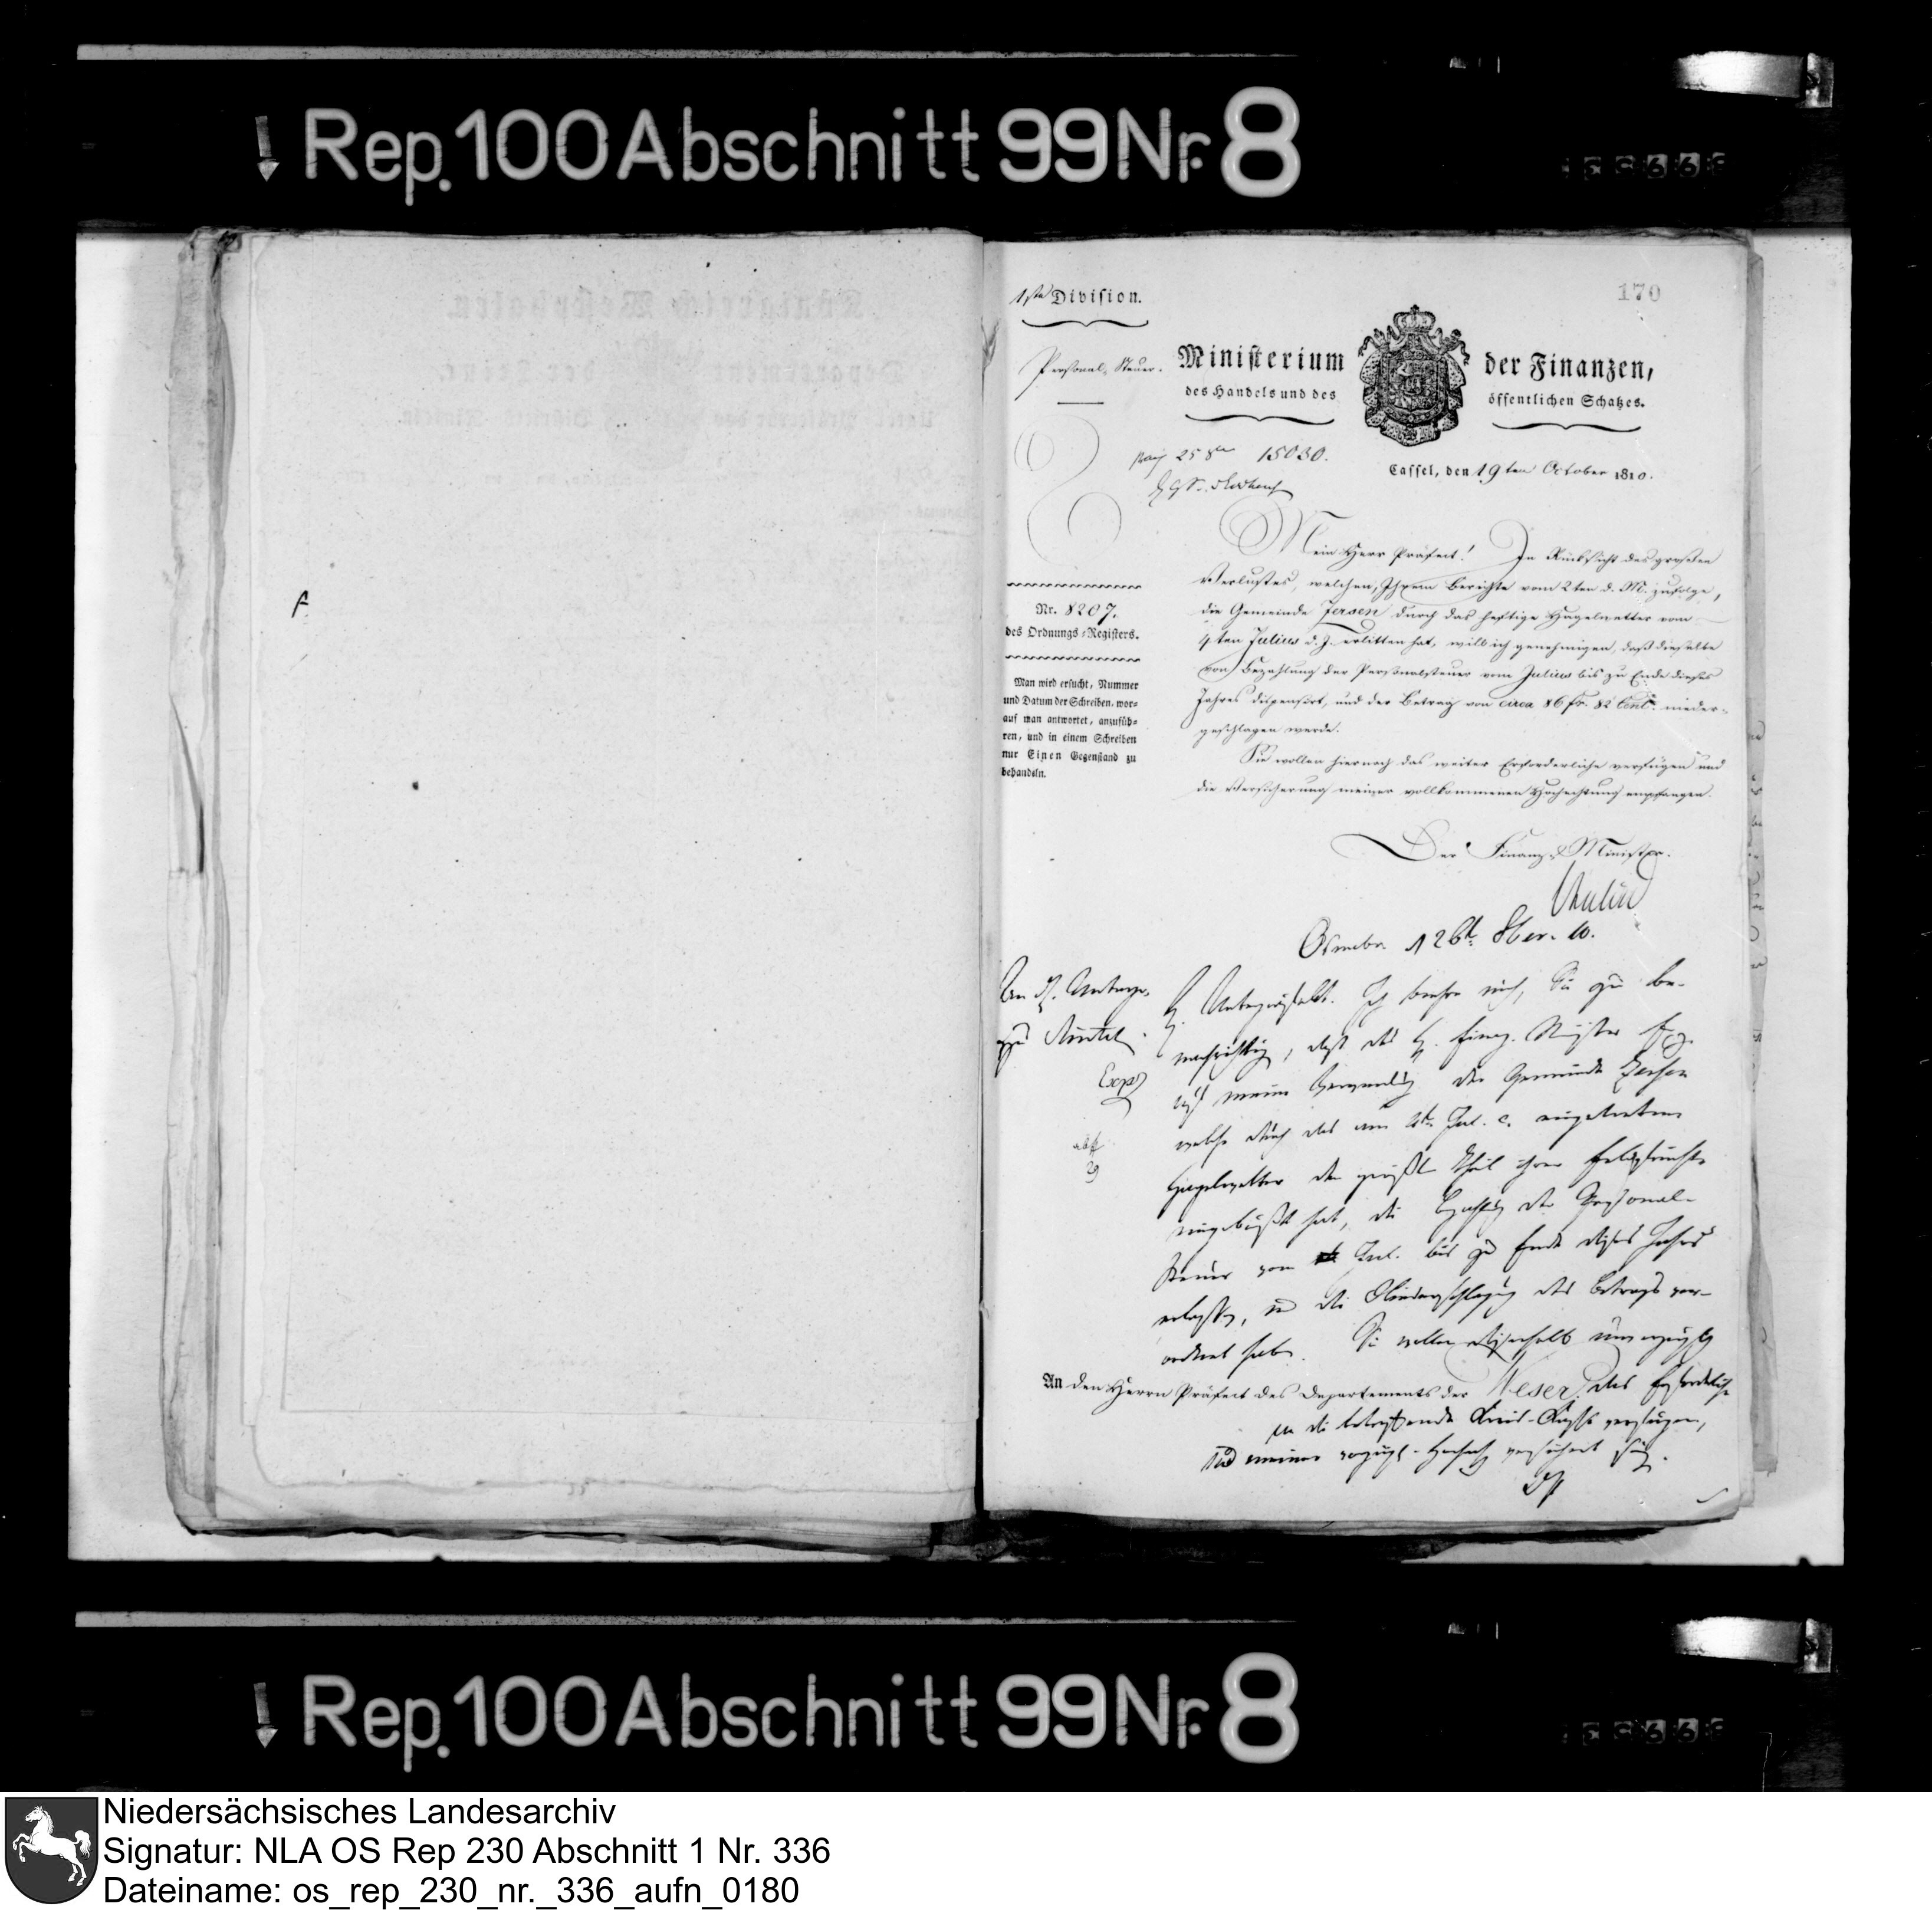 Rep. 100 Abschnitt 99 Nr. 8
170
1ste Division.
Personal-Steuer.
Ministerium der Finanzen,
des Handels und des öffentlichen Schatzes.
25 8br 15030.
Cassel, den 19ten October 1810.
Nr. 8207.
des Ordnungs-Registers.
Man wird ersucht, Nummer
und Datum der Schreiben, wor-
auf man antwortet, anzufüh-
ren, und in einem Schreiben
nur Einen Gegenstand zu
behandeln.
Mein Herr Präfect! In Rücksicht des großen
Verlustes, welchen, Ihrem Berichte vom 2ten d. M. zufolge,
die Gemeinde Jersen durch das heftige Hagelwetter vom
4ten Julius d. J. erlitten hat, will ich genehmigen, daß dieselbe
von Bezahlung der Personalsteuer vom Julius bis zu Ende dieses
Jahres dispensirt, und der Betrag von circa 86 fr. 82 Cent. nieder-
geschlagen werde.
Sie wollen hiernach das weiter Erforderliche verfügen und
die Versicherung meiner vollkommenen Hochachtung empfangen.
Der Finanz-Minister.
Osnabr. d 26t. 8ber. 10.
An H. Unterpr.
zu Rinteln.
Exp
H. Unterpräfect. Ich beehre mich, Sie zu be-
nachrichtig, daß des H. Finanz-Minister Exz.
auf meine Verwendung der Gemeinde Jersen
welche durch das am 4t. Jul. c. eingetretene
Hagelwetter den größten Theil ihrer Feldfrüchte
eingebüßt hat, die Bezahlg der Personal-
steuer vom Jul. bis zu Ende dieses Jahres
erlassen, und die Niederschlagung des Betrags ver-
ordnet habe. Sie wollen dieserhalb
An den Herrn Präfect des Departements der Weser. das Erforderliche
an die betreffende Kreis-Casse verfügen,
und meiner vorzügl. Hochacht versichert seyn.
Rep. 100 Abschnitt 99 Nr. 8
Niedersächsisches Landesarchiv
Signatur: NLA OS Rep 230 Abschnitt 1 Nr. 336
Dateiname: os_rep_230_nr._336_aufn_0180